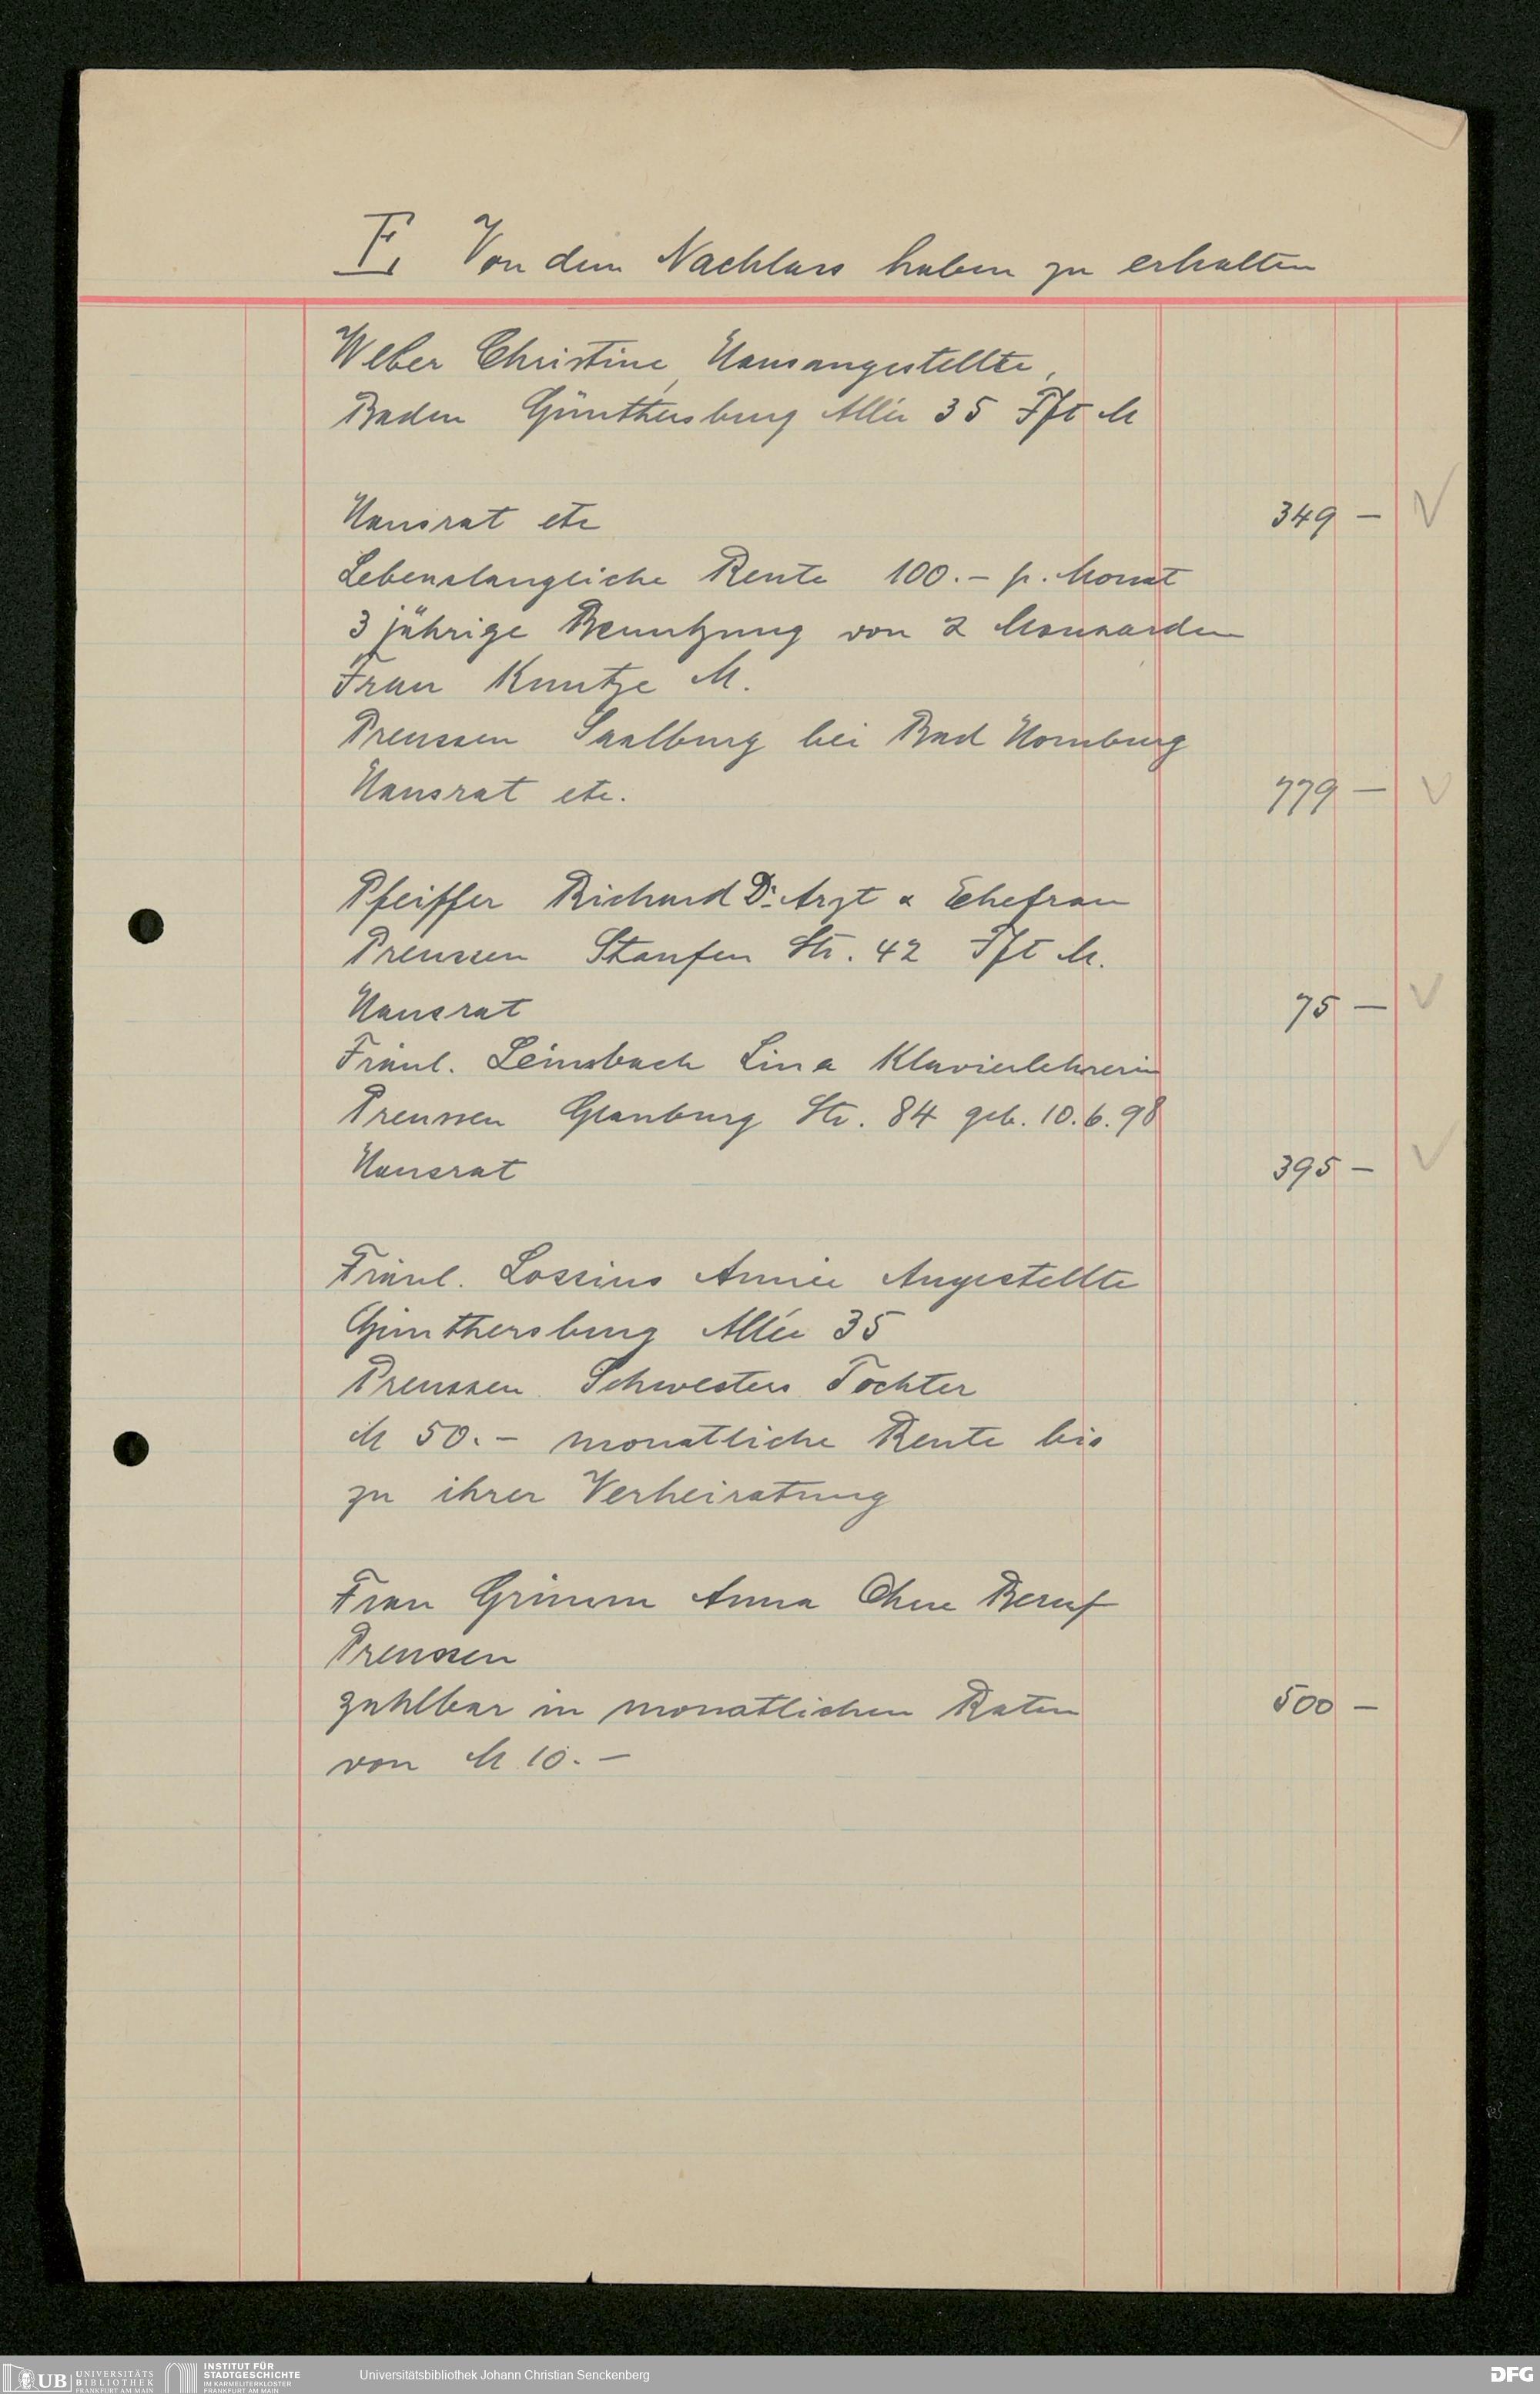 F. Von dem Nachlass haben zu erhalten
Weber Christine, Hausangestellte,
Baden Günthersburg Allée 35 Fft M
Hausrat etc 349 –
Lebenslangliche Rente 100.– p. Monat
3 jährige Benutzung von 2 Mansarden
Frau Kuntze M.
Preussen Saalburg bei Bad Homburg
Hausrat etc. 779 –
Pfeiffer Richard Dr. Arzt & Ehefrau
Preussen Staufen Str. 42 Fft M.
Hausrat 75 –
Fräul. Leimbach Lina Klavierlehrerin
Preussen Glauburg Str. 84 geb. 10.6.98
Hausrat 395 –
Fräul. Lossius Annie Angestellte
Günthersburg Allée 35
Preussen Schwesters Tochter
M 50.– monatliche Rente bis
zu ihrer Verheiratung
Frau Grimm Anna Ohne Beruf
Preussen
zahlbar in monatlichen Raten 500 –
von M 10.–
UB UNIVERSITÄTS BIBLIOTHEK FRANKFURT AM MAIN
INSTITUT FÜR STADTGESCHICHTE IM KARMELITERKLOSTER FRANKFURT AM MAIN
Universitätsbibliothek Johann Christian Senckenberg
DFG